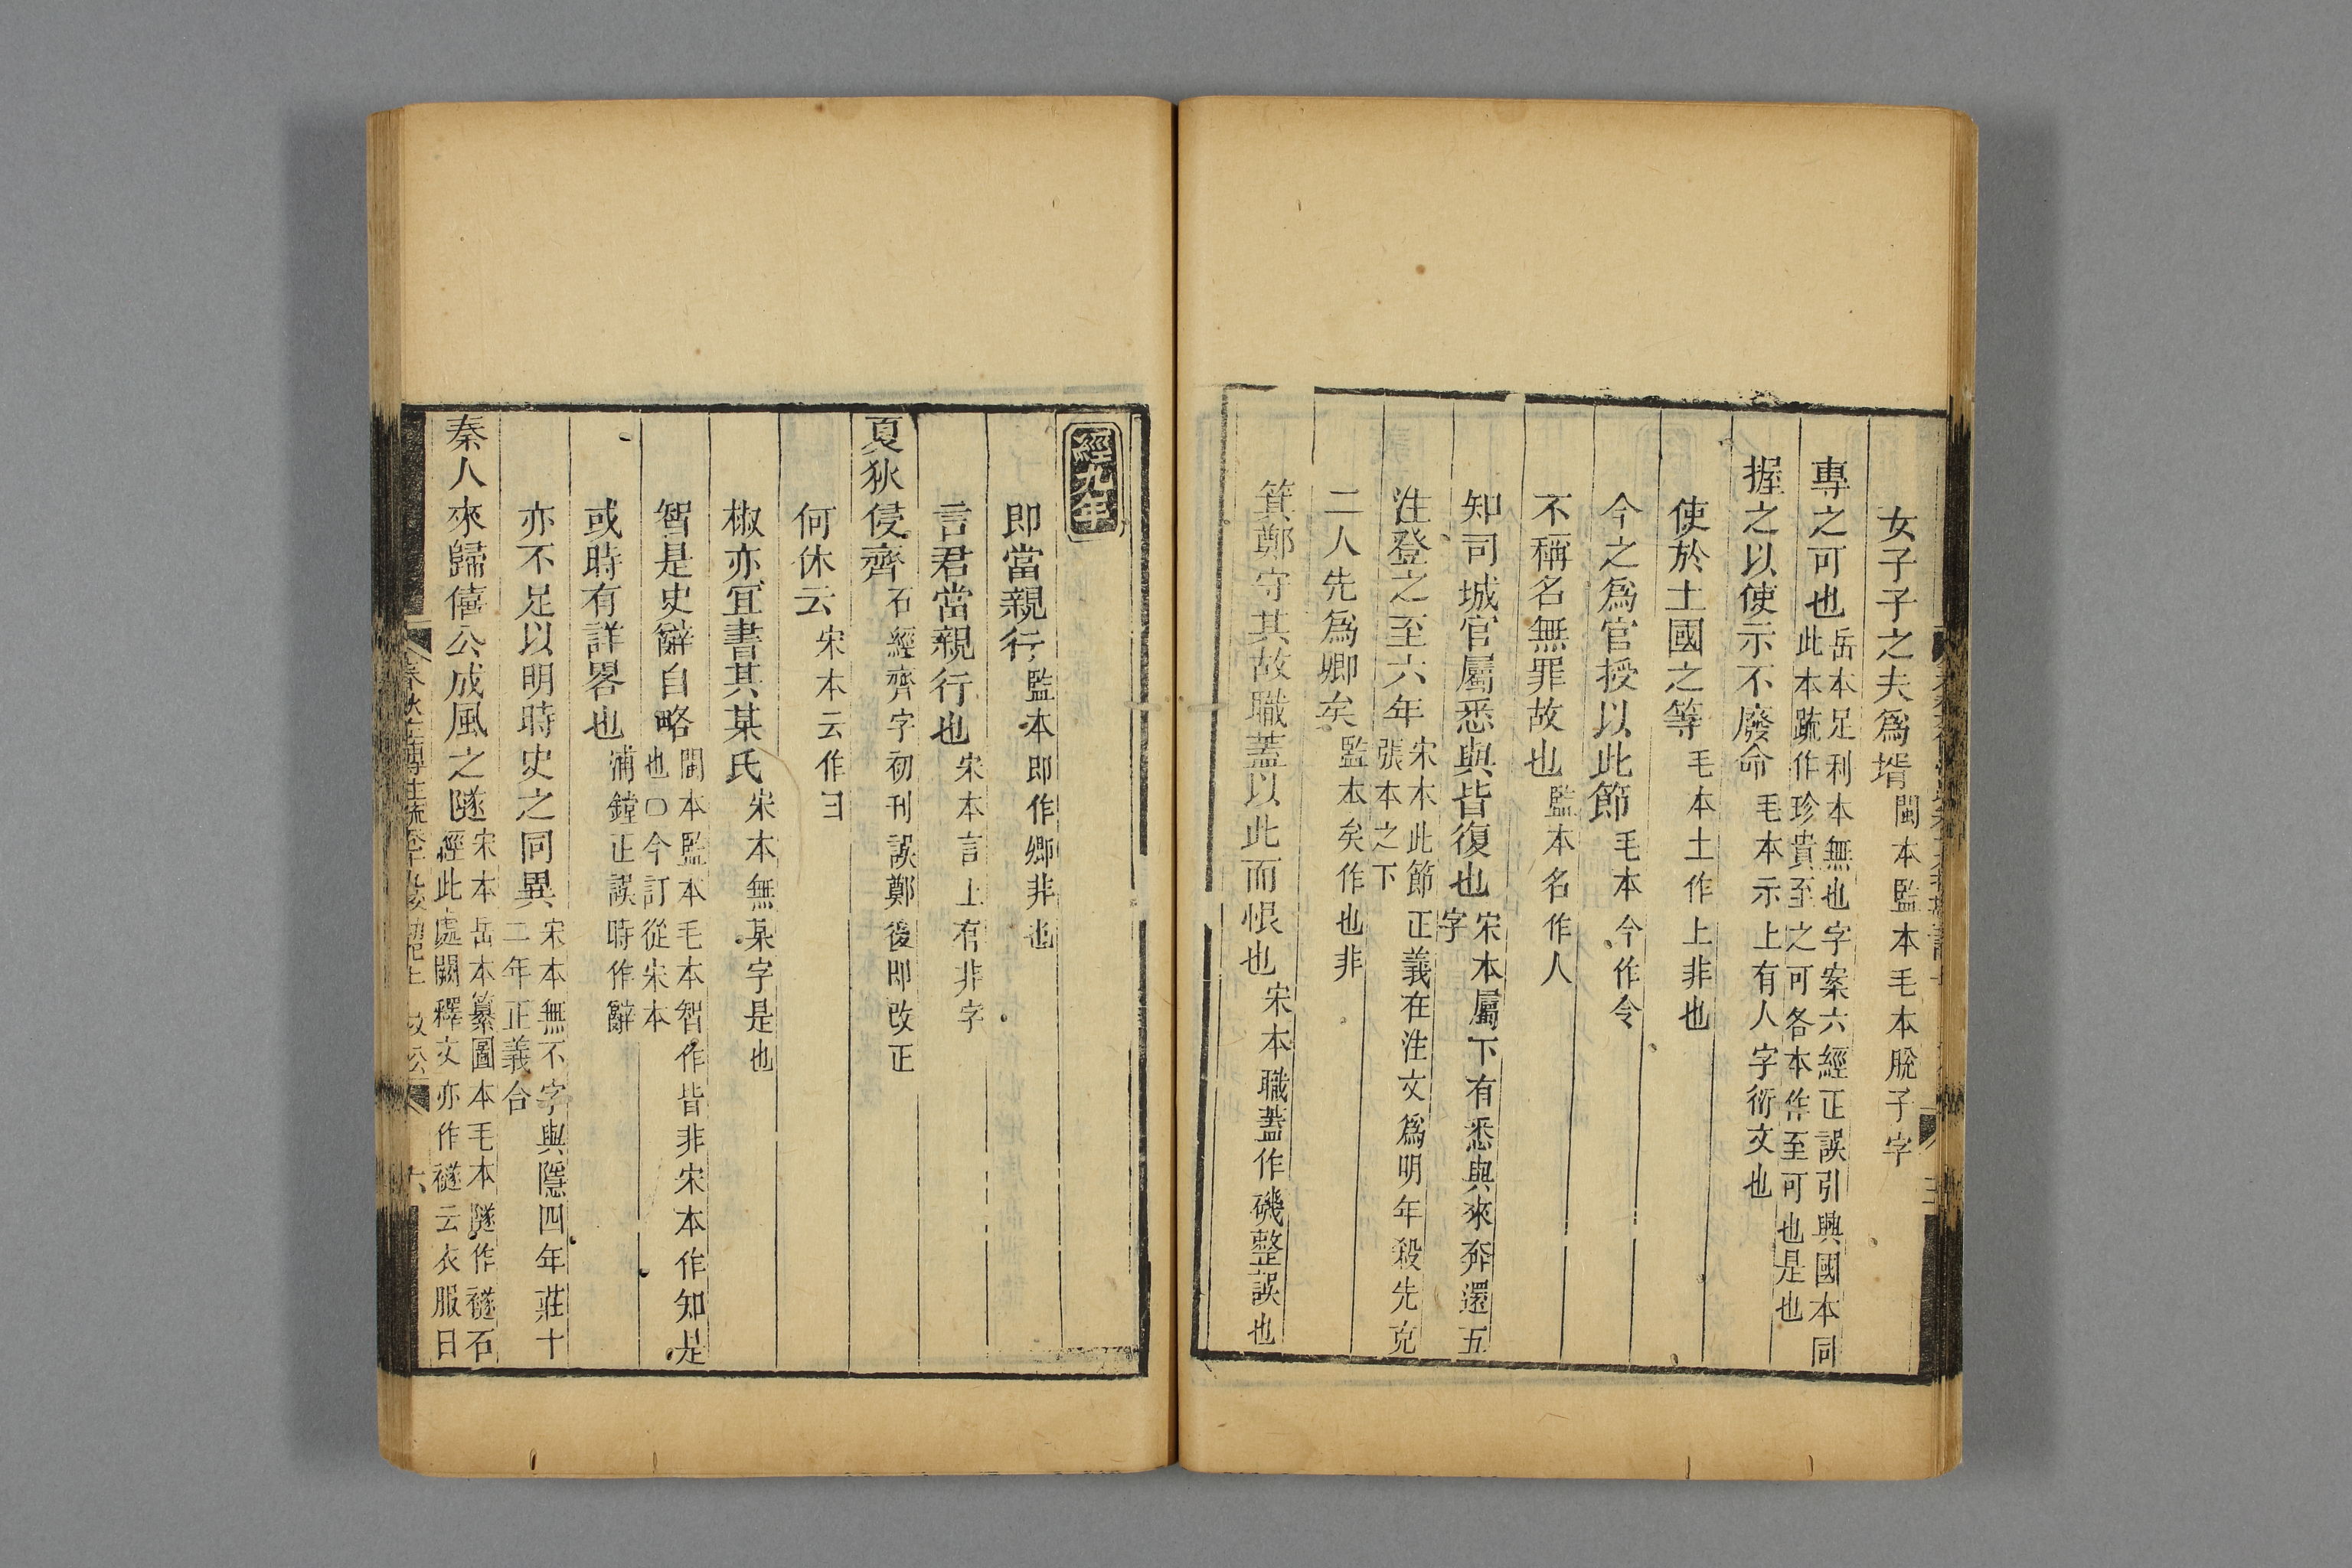 女子子之夫爲壻閩本監本毛本脫子字
專之可也岳本足利本無也字案六經正誤引興國本同
此本疏作珍貴至之可各本作至可也是也
握之以使示不廢命毛本示上有人字衍文也
使於土國之等毛本土作上非也
今之爲官授以此節毛本今作令
不稱名無罪故也監本名作人
知司城官屬悉與皆復也宋本屬下有悉與來奔還五
字
注登之至六年宋本此節正義在注文爲明年殺先克
張本之下
二人先爲卿矣監本矣作也非
箕鄭守其故職蓋以此而恨也宋本職蓋作磯整誤也
經九年
即當親行監本即作卿非也
言君當親行也宋本言上有非字
夏狄侵齊石經齊字初刊誤鄭後即改正
何休云宋本云作曰
椒亦宜書其某氏宋本無某字是也
智是史辭自略閩本監本毛本智作皆非宋本作知是
也〇今訂從宋本
或時有詳畧也浦鏜正誤時作辭
亦不足以明時史之同異宋本無不字與隱四年莊十
二年正義合
秦人來歸僖公成風之隧宋本岳本纂圖本毛本隧作襚石
經此處闕釋文亦作襚云衣服曰